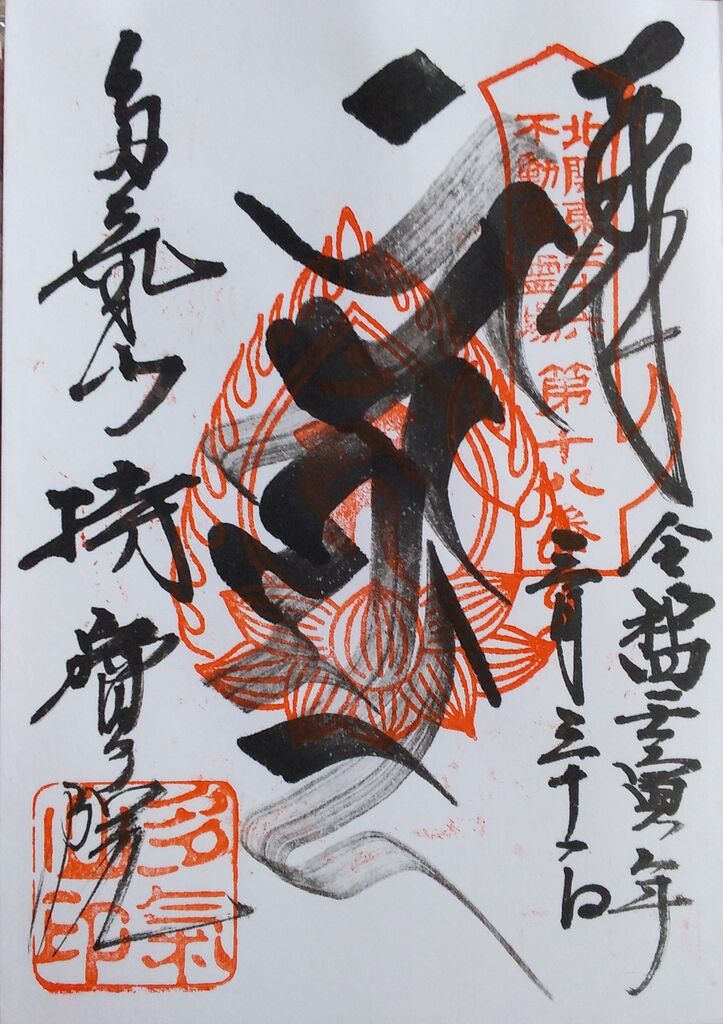 北関東三十六
不動尊霊場
第十八番
令和四壬寅年
三月三十一日
多氣山 持寳院
多氣
山印